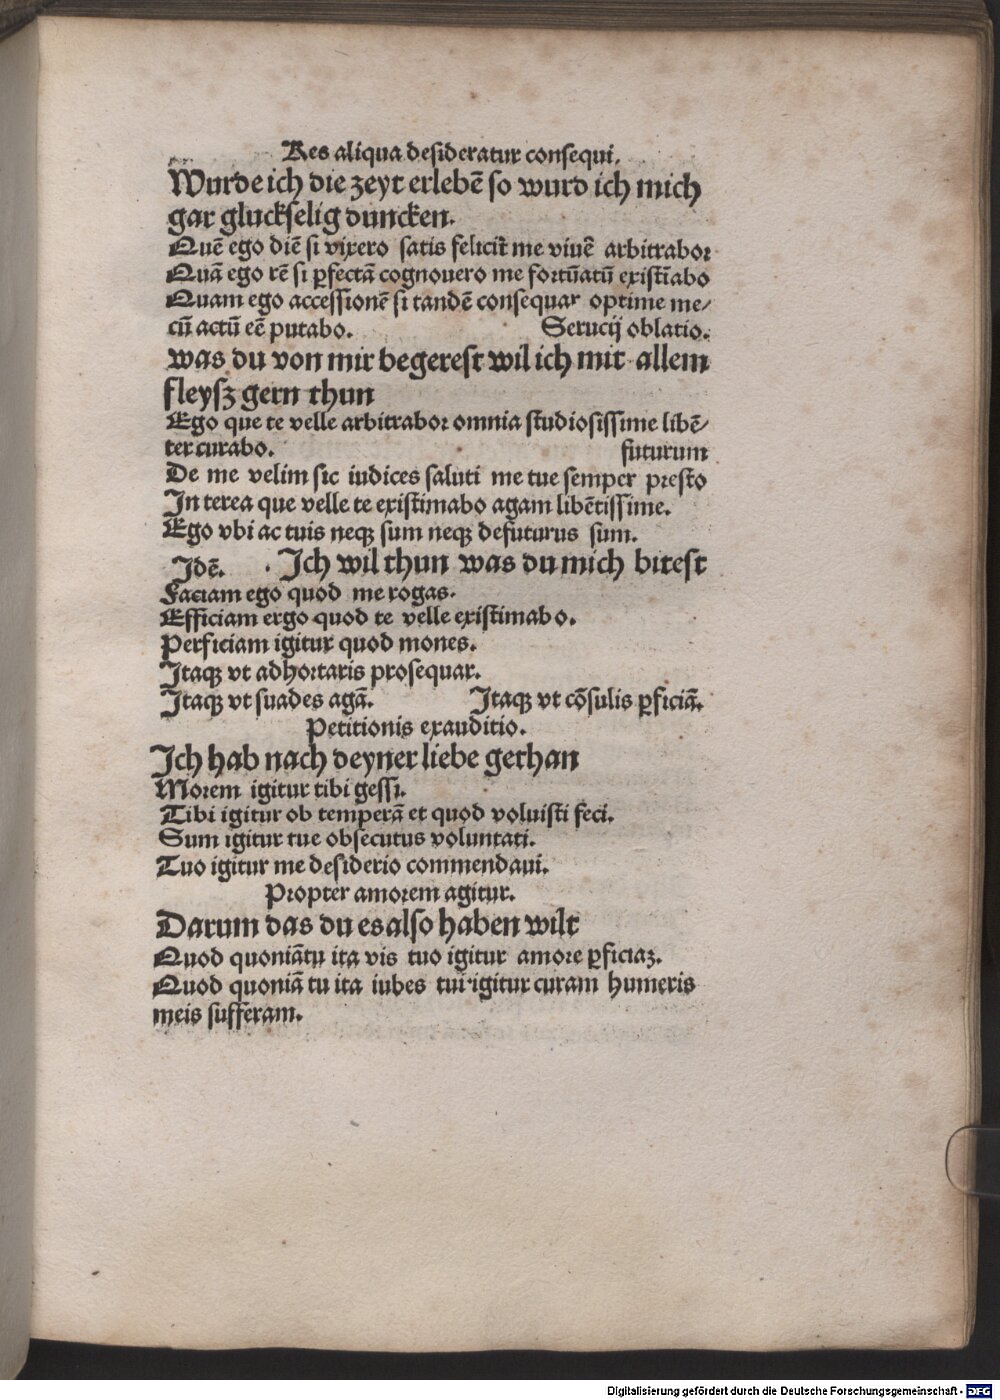 Res aliqua desideratur consequi.
Wurde ich die zeyt erlebē so wurd ich mich
gar gluckselig duncken.
Quē ego diē si vixero satis felicit̄ me viuē arbitrabor
Quā ego rē si ꝑfectā cognouero me fortūatū existīabo
Quam ego accessionē si tandē consequar optime me⸗
cū actū eē putabo. Serucij oblatio.
was du von mir begerest wil ich mit allem
fleysz gern thun
Ego que te velle arbitrabor omnia studiosissime libē⸗
ter curabo. futurum
De me velim sic iudices saluti me tue semper presto
In terea que velle te existimabo agam libētissime.
Ego vbi ac tuis neqꝫ sum neqꝫ defuturus sum.
Idē. Ich wil thun was du mich bitest
Faciam ego quod me rogas.
Efficiam ergo quod te velle existimabo.
Perficiam igitur quod mones.
Itaqꝫ vt adhortaris prosequar.
Itaqꝫ vt suades agā. Itaqꝫ vt cōsulis ꝑficiā.
Petitionis exauditio.
Ich hab nach deyner liebe gethan
Morem igitur tibi gessi.
Tibi igitur ob temperā et quod voluisti feci.
Sum igitur tue obsecutus voluntati.
Tuo igitur me desiderio commendaui.
Propter amorem agitur.
Darum das du es also haben wilt
Quod quoniātu ita vis tuo igitur amore ꝑficiaꝫ.
Quod quoniā tu ita iubes tui igitur curam humeris
meis sufferam.
Digitalisierung gefördert durch die Deutsche Forschungsgemeinschaft - DFG